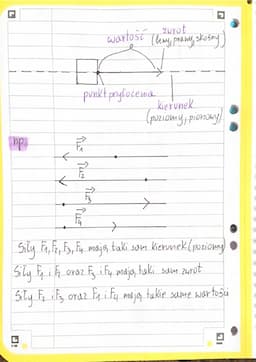 wartość
zwrot
(lewy, prawy, skośny)
punkt przyłożenia
kierunek
(poziomy, pionowy)
np.
F₁
F₂
F₃
F₄
Siły F₁, F₂, F₃, F₄ mają taki sam kierunek (poziomy)
Siły F₁ i F₂ oraz F₃ i F₄ mają taki sam zwrot
Siły F₂ i F₃ oraz F₁ i F₄ mają takie same wartości